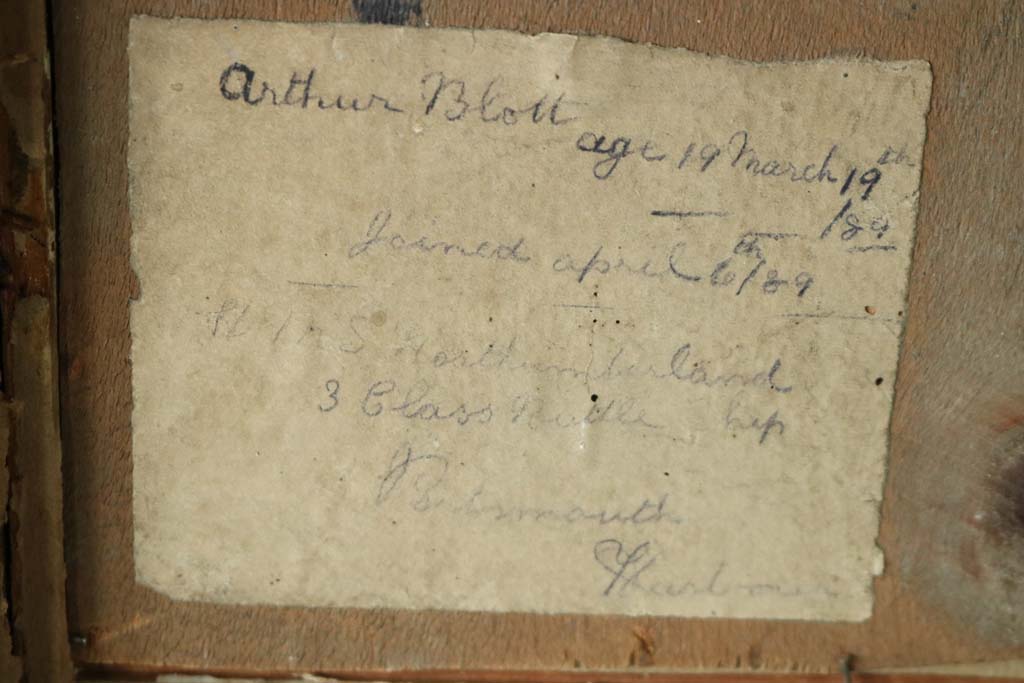 Arthur Blott
age 19 March 19th
/89
Joined april 6th/89
H M S Northumberland
3 Class Battle Ship
Portsmouth
Harbour